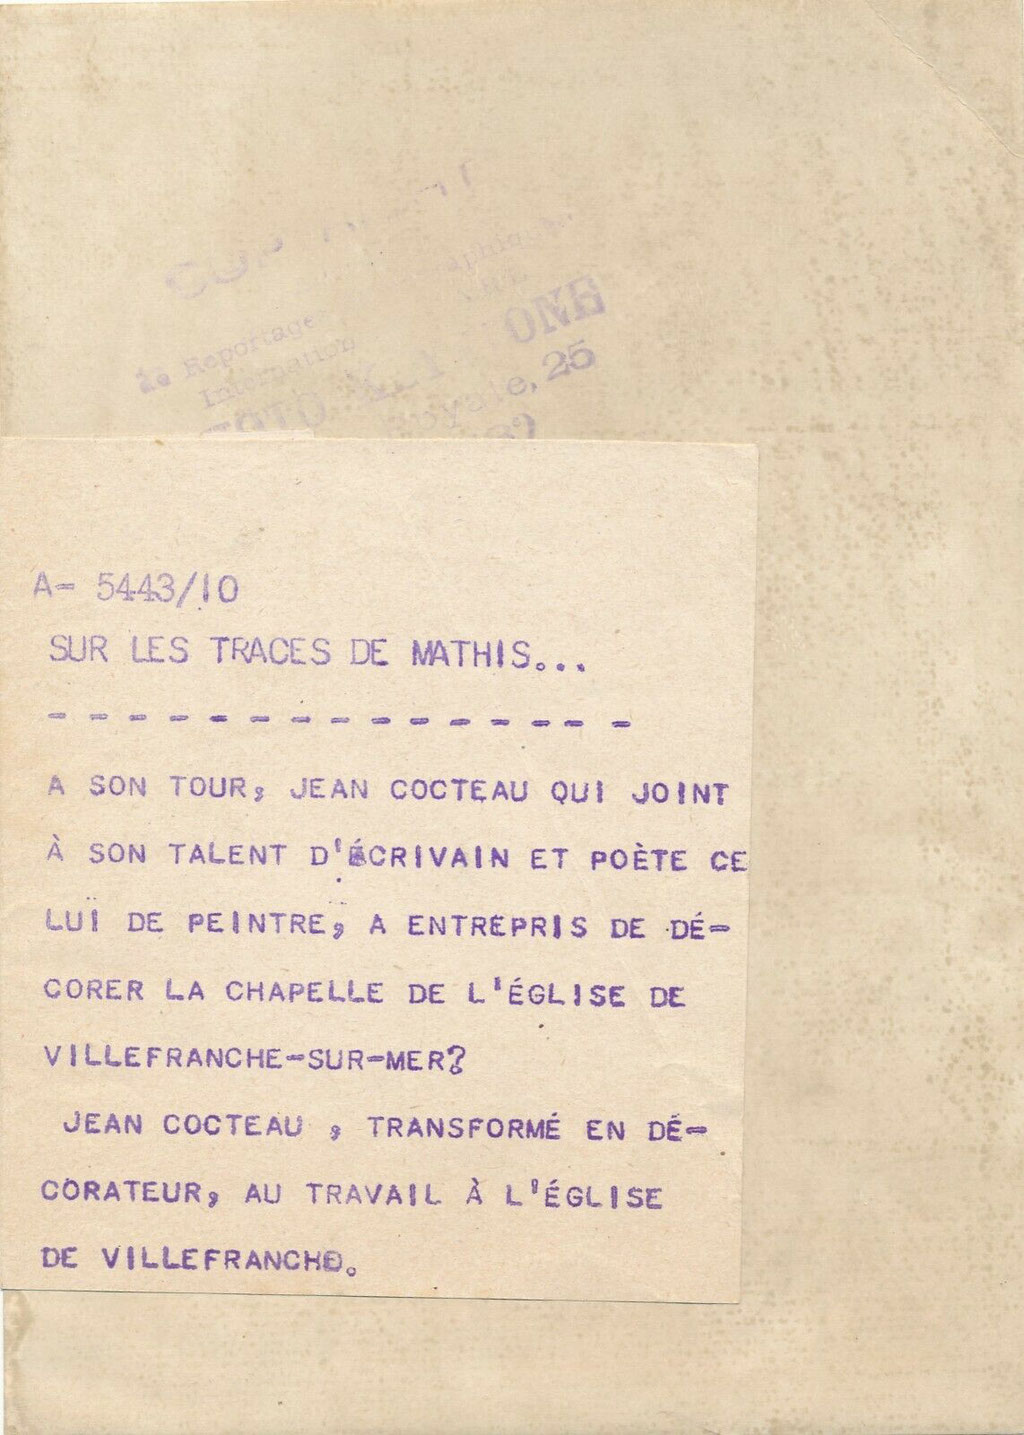 de Reportages
25
A- 5443/10
SUR LES TRACES DE MATHIS...
- - - - - - - - - - - - - - -
A SON TOUR, JEAN COCTEAU QUI JOINT
À SON TALENT D'ÉCRIVAIN ET POÈTE CE
LUI DE PEINTRE, A ENTREPRIS DE DÉ-
CORER LA CHAPELLE DE L'ÉGLISE DE
VILLEFRANCHE-SUR-MER?
JEAN COCTEAU , TRANSFORMÉ EN DÉ-
CORATEUR, AU TRAVAIL À L'ÉGLISE
DE VILLEFRANCHE.